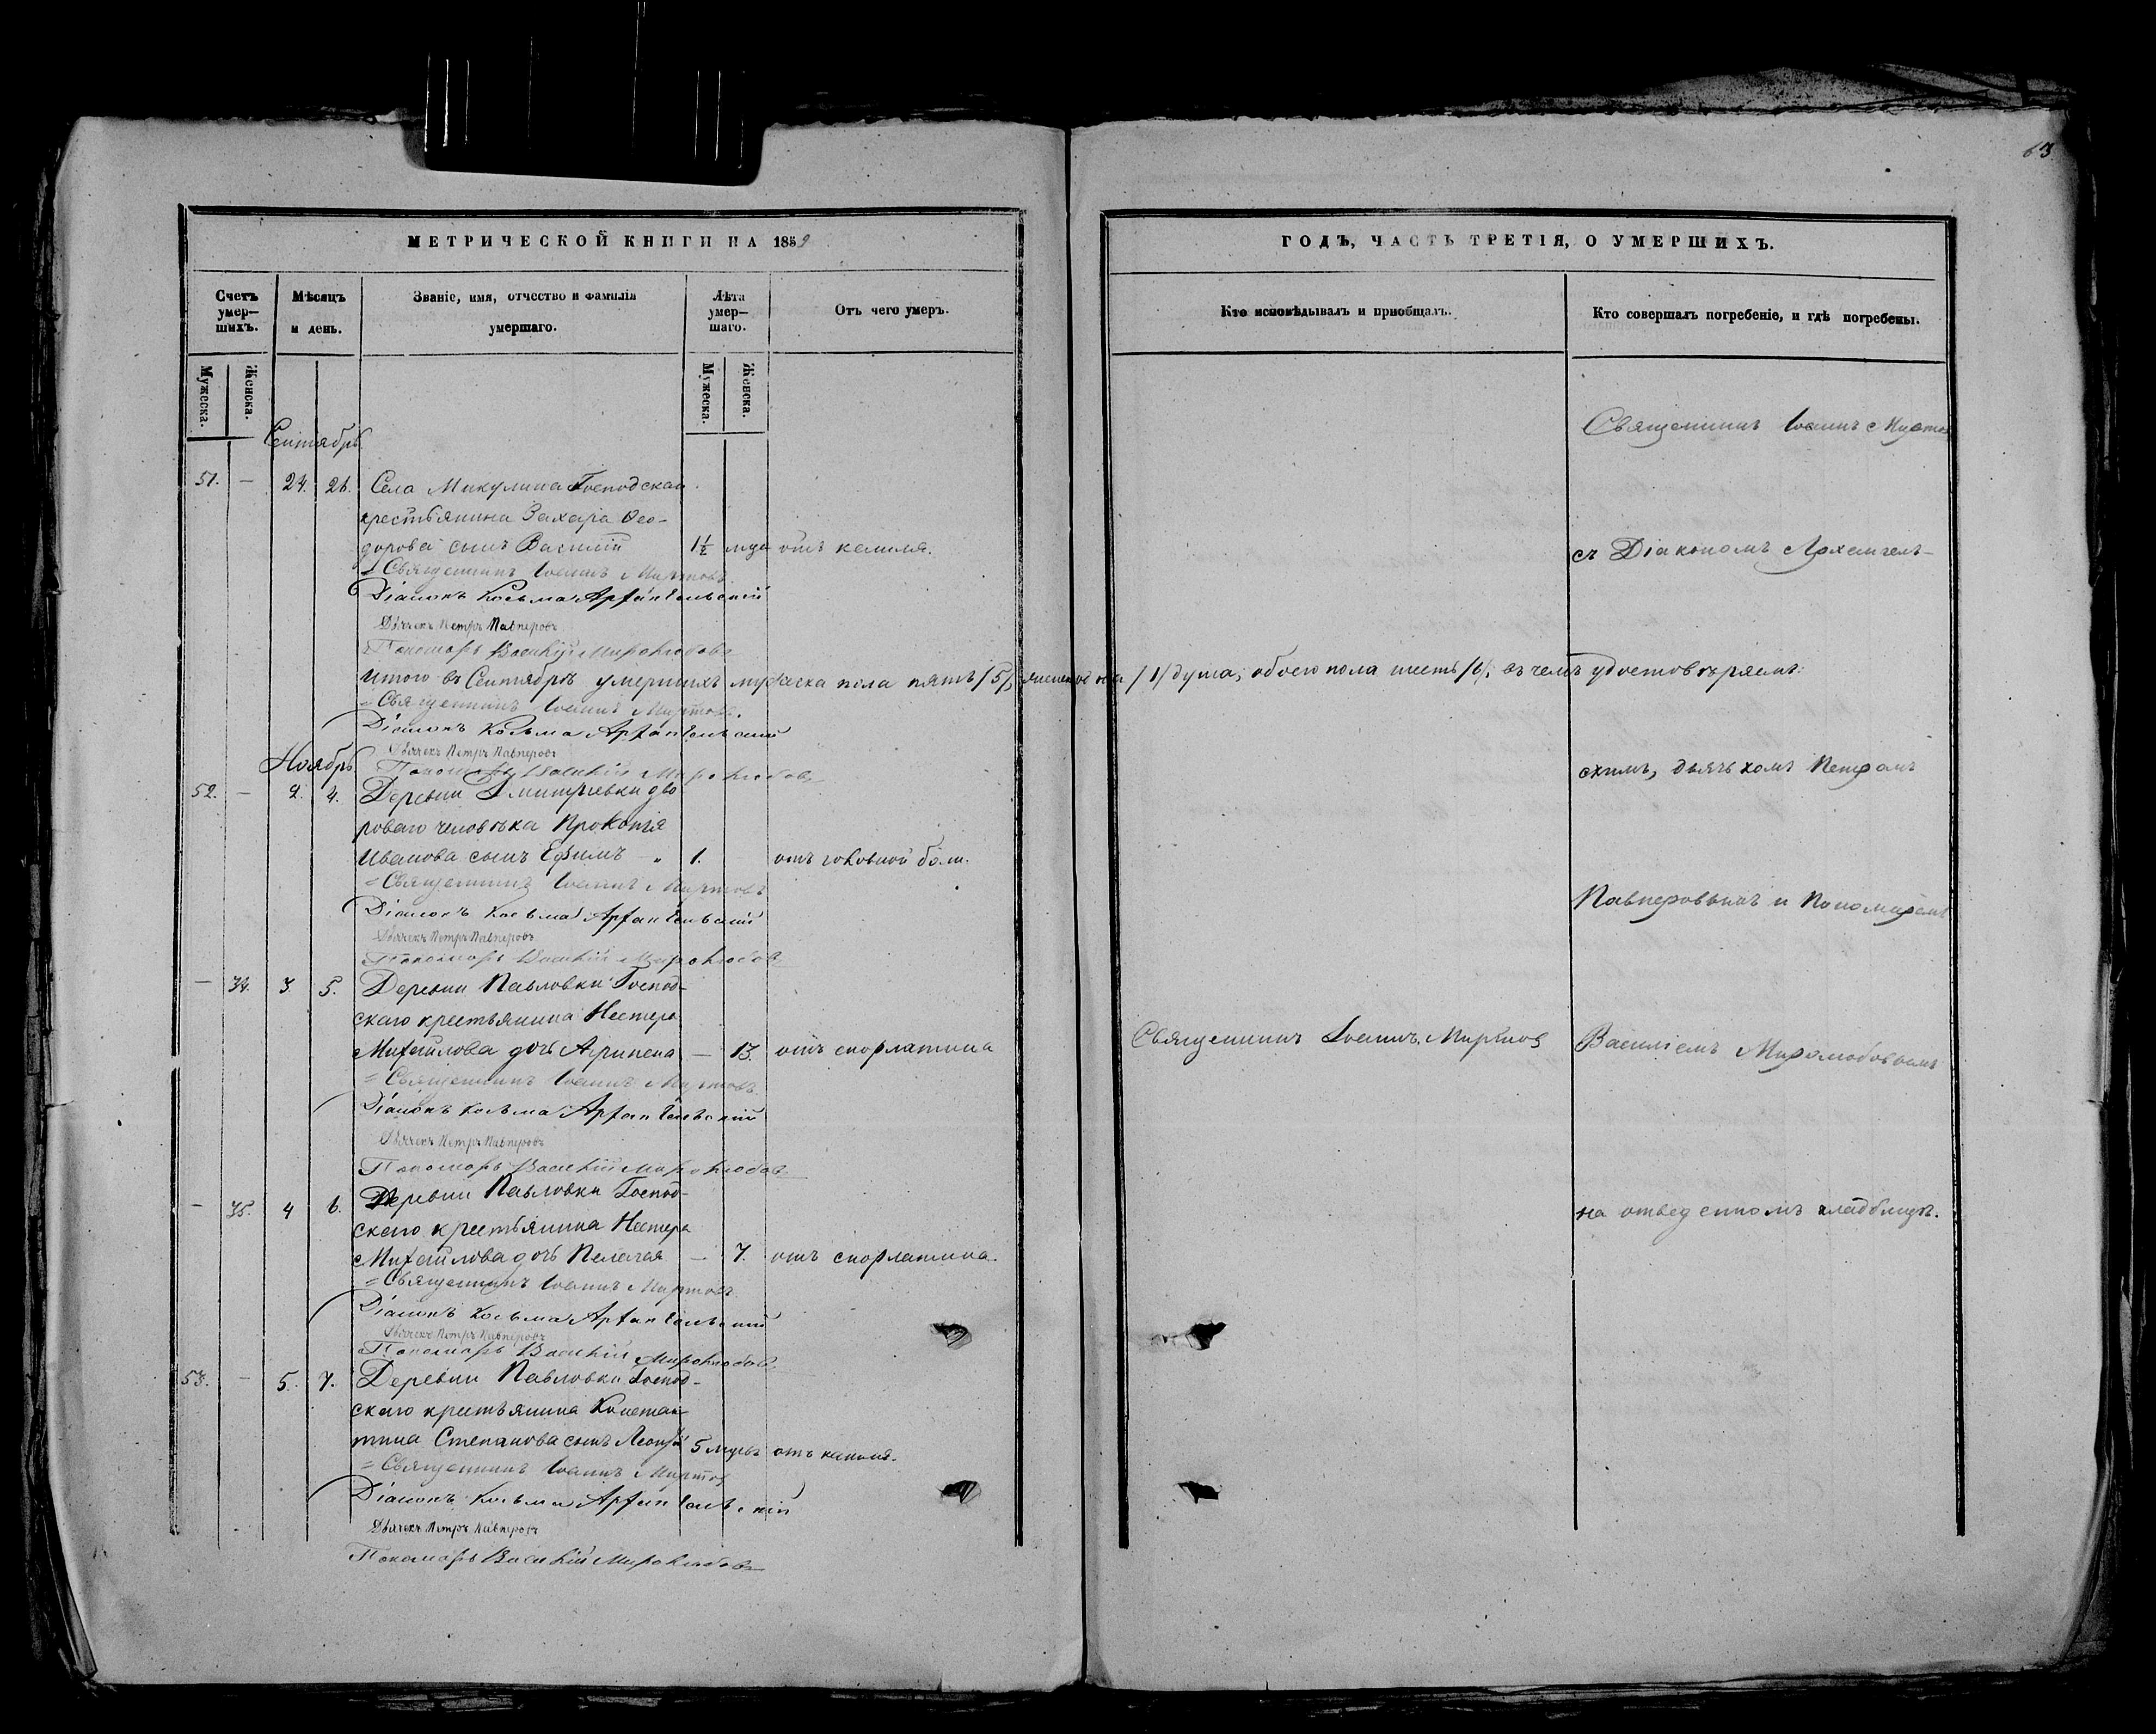 63
МЕТРИЧЕСКОЙ КНИГИ НА 1859
Счетъ умер-шихъ.
Мѣсяцъ и день.
Званіе, имя, отчество и фамилія умершаго.
Лѣта умер-шаго.
Отъ чего умеръ.
Мужеска. Женска.
Мужеска. Женска.
Сентябрь
51. — 24. 26. Села Микулина Господскаго
крестьянина Захара Ѳео-
дорова сынъ Василій 1½ мца отъ кашля.
Священникъ Іоаннъ Миртовъ
Діаконъ Косьма Архангельскій
Дьячекъ Петръ Павперовъ
Пономарь Василій Миролюбовъ
Итого въ Сентябрѣ умершихъ мужеска пола пять /5/, женска /1/ душа; обоего пола шесть /6/; въ чемъ удостовѣряемъ:
Священникъ Іоаннъ Миртовъ.
Діаконъ Косьма Архангельскій
Дьячекъ Петръ Павперовъ
Пономарь Василій Миролюбовъ
Ноябрь
52. — 2. 4. Деревни Дмитріевки дво
роваго человѣка Прокопія
Иванова сынъ Ефимъ 1. отъ головной боли.
Священникъ Іоаннъ Миртовъ
Діаконъ Косьма Архангельскій
Дьячекъ Петръ Павперовъ
Пономарь Василій Миролюбовъ
— 34. 3. 5. Деревни Павловки Господ-
скаго крестьянина Нестера
Михайлова дочь Агрипена — 13. отъ скорлатина
Священникъ Іоаннъ Миртовъ
Діаконъ Косьма Архангельскій
Дьячекъ Петръ Павперовъ
Пономарь Василій Миролюбовъ
— 35. 4 6. Деревни Павловки Господ-
скаго крестьянина Нестера
Михайлова дочь Пелагея — 7. отъ скорлатина.
Священникъ Іоаннъ Миртовъ
Діаконъ Косьма Архангельскій
Дьячекъ Петръ Павперовъ
Пономарь Василій Миролюбовъ
53. — 5. 7. Деревни Павловки Господ-
скаго крестьянина Констан
тина Степанова сынъ 5 мцовъ отъ кашля.
Священникъ Іоаннъ Миртовъ
Діаконъ Косьма Архангельскій
Дьячекъ Петръ Павперовъ
Пономарь Василій Миролюбовъ
ГОДЪ, ЧАСТЬ ТРЕТІЯ, О УМЕРШИХЪ.
Кто исповѣдывалъ и пріобщалъ.
Кто совершалъ погребеніе, и гдѣ погребены.
Священникъ Іоаннъ Миртов
съ Діакономъ Архангель-
скимъ, дьячькомъ Петромъ
Павперовымъ и Пономаремъ
Священникъ Іоаннъ Миртовъ
Василіемъ Миролюбовымъ
на отведенномъ кладбищѣ.